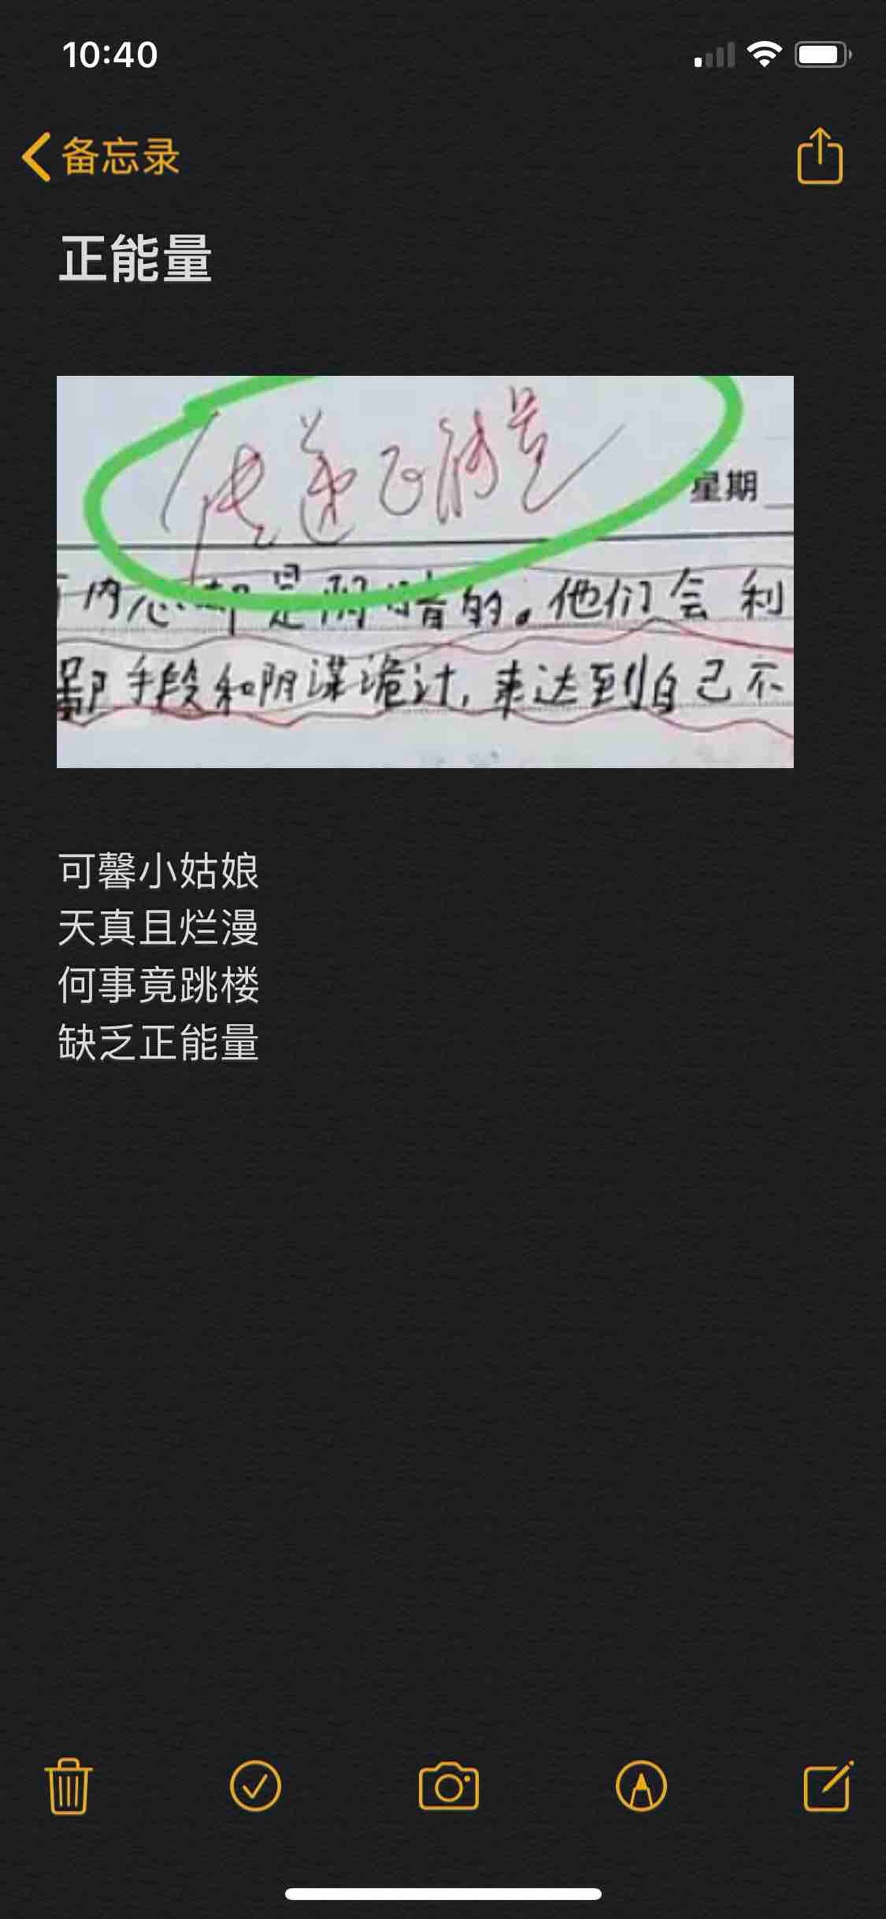 10:40
备忘录
正能量
传递正能量
星期
内心却是阴暗的。他们会利
鄙手段和阴谋诡计,来达到自己不
可馨小姑娘
天真且烂漫
何事竟跳楼
缺乏正能量